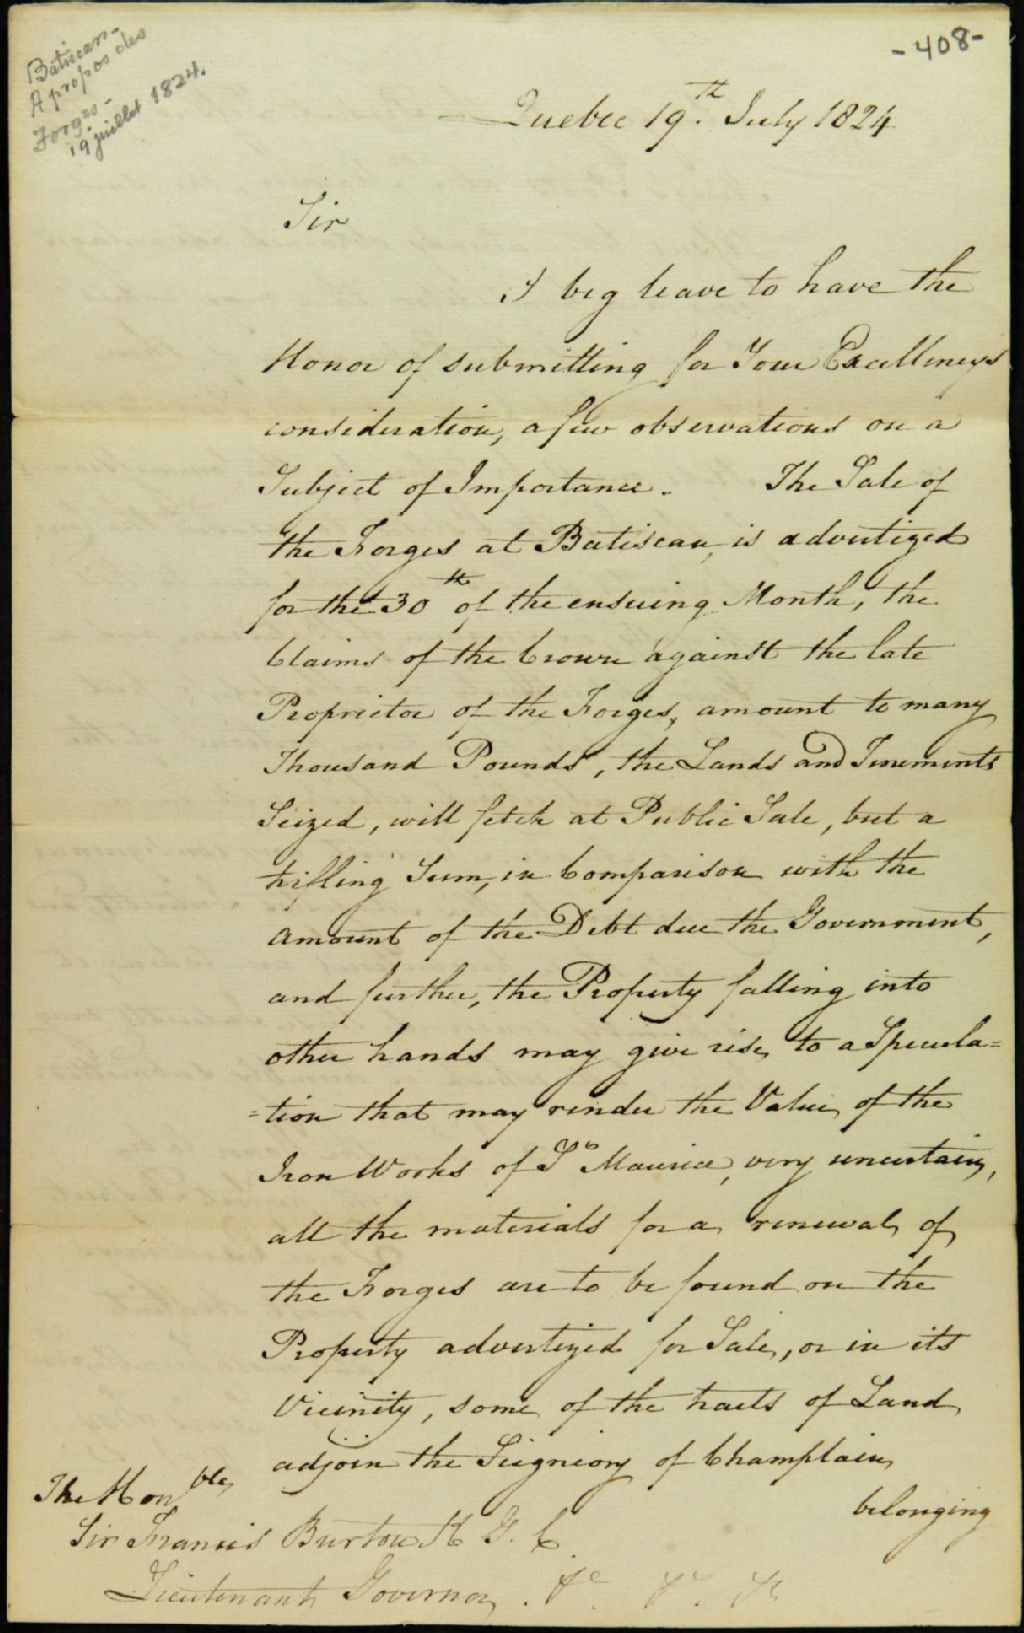 -408-
Batiscan-
A propos des
Forges-
19 juillet 1824.
Quebec 19.th July 1824
Sir
I beg leave to have the
Honor of submitting for Your Excellencys
consideration, a few observations on a
Subject of Importance. The Sale of
the Forges at Batiscan, is advertized
for the 30th of the ensuing Month, the
Claims of the Crown against the late
Proprietor of the Forges, amount to many
Thousand Pounds, the Lands and Tenements
Seized, will fetch at Public Sale, but a
trifling Sum, in Comparison with the
amount of the Debt due the Government,
and further, the Property falling into
other hands may give rise to a Specula=
=tion that may render the Value of the
Iron Works of St Maurice, very uncertain,
all the materials for a renewal of
the Forges are to be found on the
Property advertized for Sale, or in its
Vicinity, some of the tracts of Land
adjoin the Seigniory of Champlain
belonging
The Honble
Sir Francis Burton K G. C
Lieutenant Governor &c &c &c